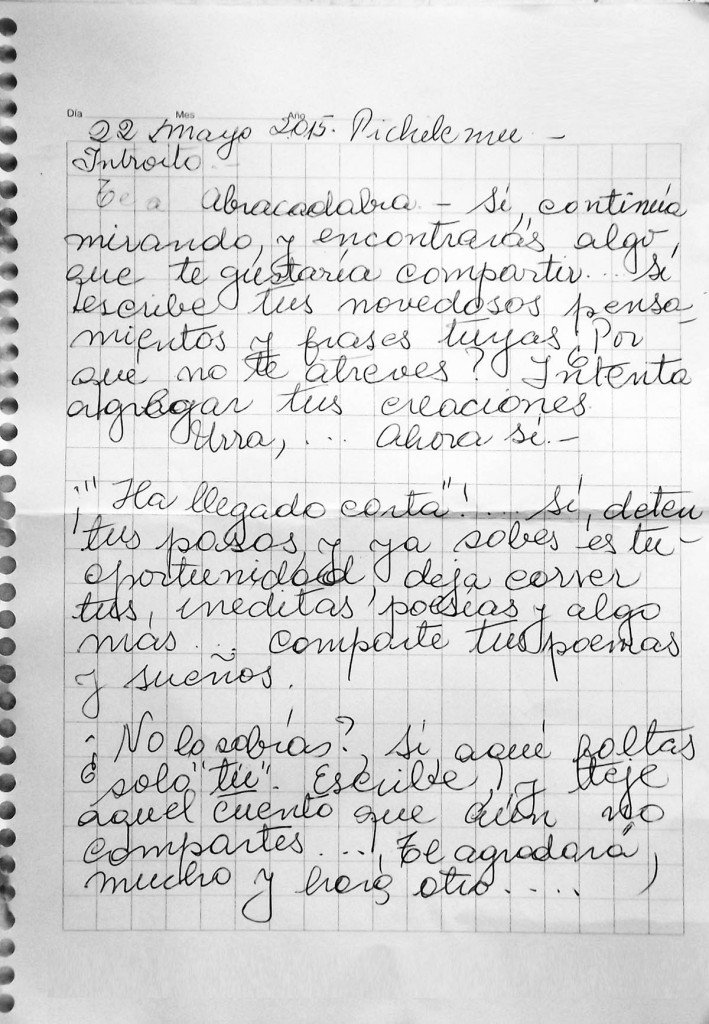 Día Mes Año
22 Mayo 2015. Pichilemu -
Introito -
Abracadabra - Sí, continúa
mirando, y encontrarás algo,
que te gustaría compartir... Sí
escribe tus novedosos pensa
mientos y frases tuyas ¿Por
qué no te atreves? Intenta
agregar tus creaciones
Urra, ... Ahora sí.-
¡"Ha llegado carta"!... Sí, deten
tus pasos y ya sabes es tu-
oportunidad, deja correr
tus, ineditas poesías y algo
más ... comparte tus poemas
y sueños.
¿No lo sabías?, Sí aquí faltas
solo "tú". Escribe, y teje
aquel cuento que aún no
compartes ..., te agradará,
mucho y hará otro ....